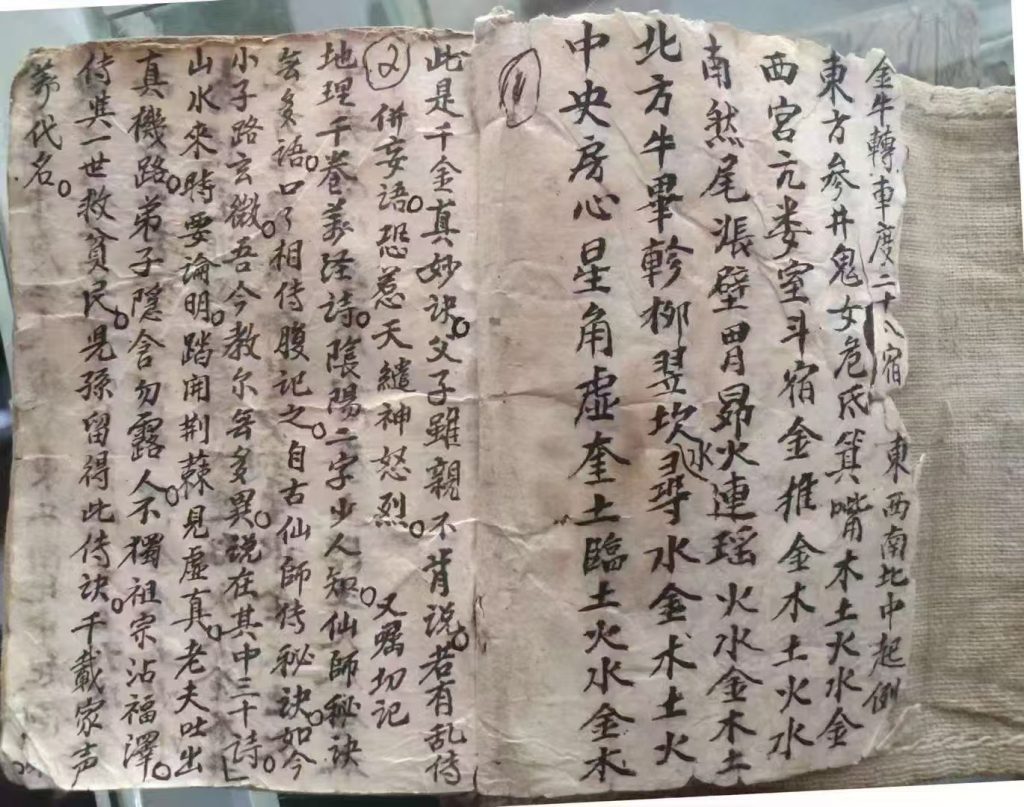 金牛轉車度二十八宿 東西南北中起例
東方参井鬼女危氐箕嘴木土火水金
西宮亢娄室斗宿金推金木土火水
南然尾張壁胃昴火連瑶火水金木土
北方牛畢軫柳翌坎水尋水金木土火
中央房心星角虚奎土臨土火水金木
①
此是千金真妙诀。父子雖親不肯説。若有乱传
②併妄語。恐惹天譴神怒烈。又嘱切记
地理千卷萬经诗。陰陽二字少人知。仙師秘诀
無多語。口了相传腹记之。自古仙師传秘诀。如今
小子路玄微。吾今教尔無多異。说在其中三十诗。
山水來時要論明。踏開荆蔴見虚真。老夫吐出
真機路。弟子隱含勿露人。不獨祖宗沾福澤。
传與一世救貧民。児孫留得此传诀。千載家声
萬代名。